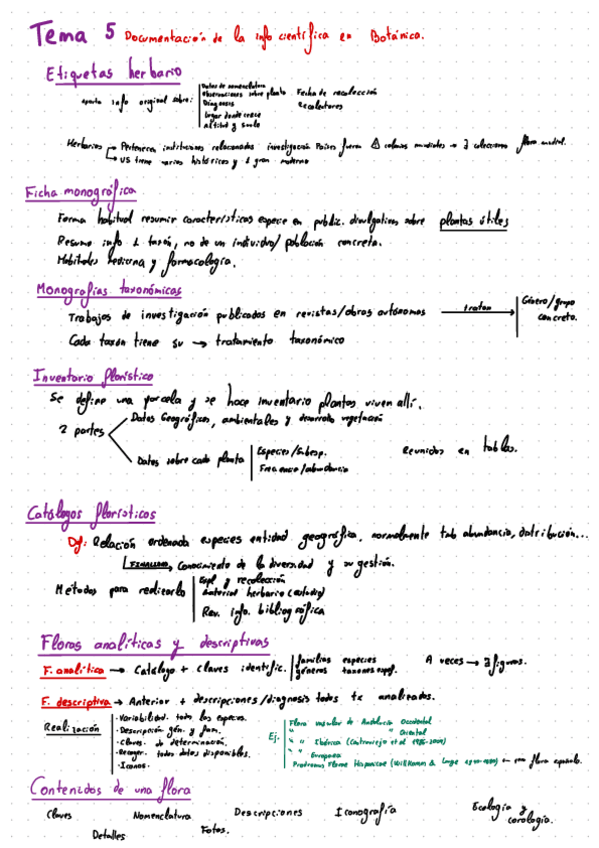 Tema 5 Documentación de la info científica en Botánica.
Etiquetas herbario
aporta info original sobre: Datos de nomenclatura
Observaciones sobre planta
Diagnosis
Lugar donde crece
altitud y suelo
Fecha de recolección
Recolectores
Herbarios → Pertenecen instituciones relacionadas investigación
→ US tiene varios históricos y 1 gran moderno
Ficha monográfica
Forma habitual resumir características especie en public. divulgativas sobre plantas útiles
Resume info 1 taxón, no de un individuo/población concreta.
Habituales medicina y farmacología.
Monografías taxonómicas
Trabajos de investigación publicados en revistas/obras autónomas → tratan Género/grupo concreto.
Cada taxón tiene su → tratamiento taxonómico
Inventario florístico
Se define una parcela y se hace inventario plantas viven allí.
2 partes
Datos Geográficos, ambientales y desarrollo vegetación
Datos sobre cada planta
Especies/Subesp.
Frecuencia/abundancia
Reunidos en tablas.
Catálogos florísticos
Df: Relación ordenada especies entidad geográfica, normalmente tab abundancia, distribución...
FINALIDAD, Conocimiento de la diversidad y su gestión.
Métodos para realizarlo
Expl. y recolección
Material herbario (estudio)
Rev. info. bibliográfica
Floras analíticas y descriptivas
F. analítica → Catálogo + claves identific.
familias especies
géneros
A veces → ∃ figuras.
F. descriptiva → Anterior + descripciones/diagnosis todos tx analizados.
Realización
· Variabilidad. todas las especies.
· Descripción gén. y fam.
· Claves de determinación.
· Recoger todos datos disponibles.
· Iconos.
Ej. Flora vascular de Andalucía Occidental
" " " Oriental
" " Ibérica
" " Europaea
Prodromus Florae Hispanicae
Contenidos de una flora
Claves
Nomenclatura
Descripciones
Iconografía
Ecología y corología.
Detalles
Fotos.